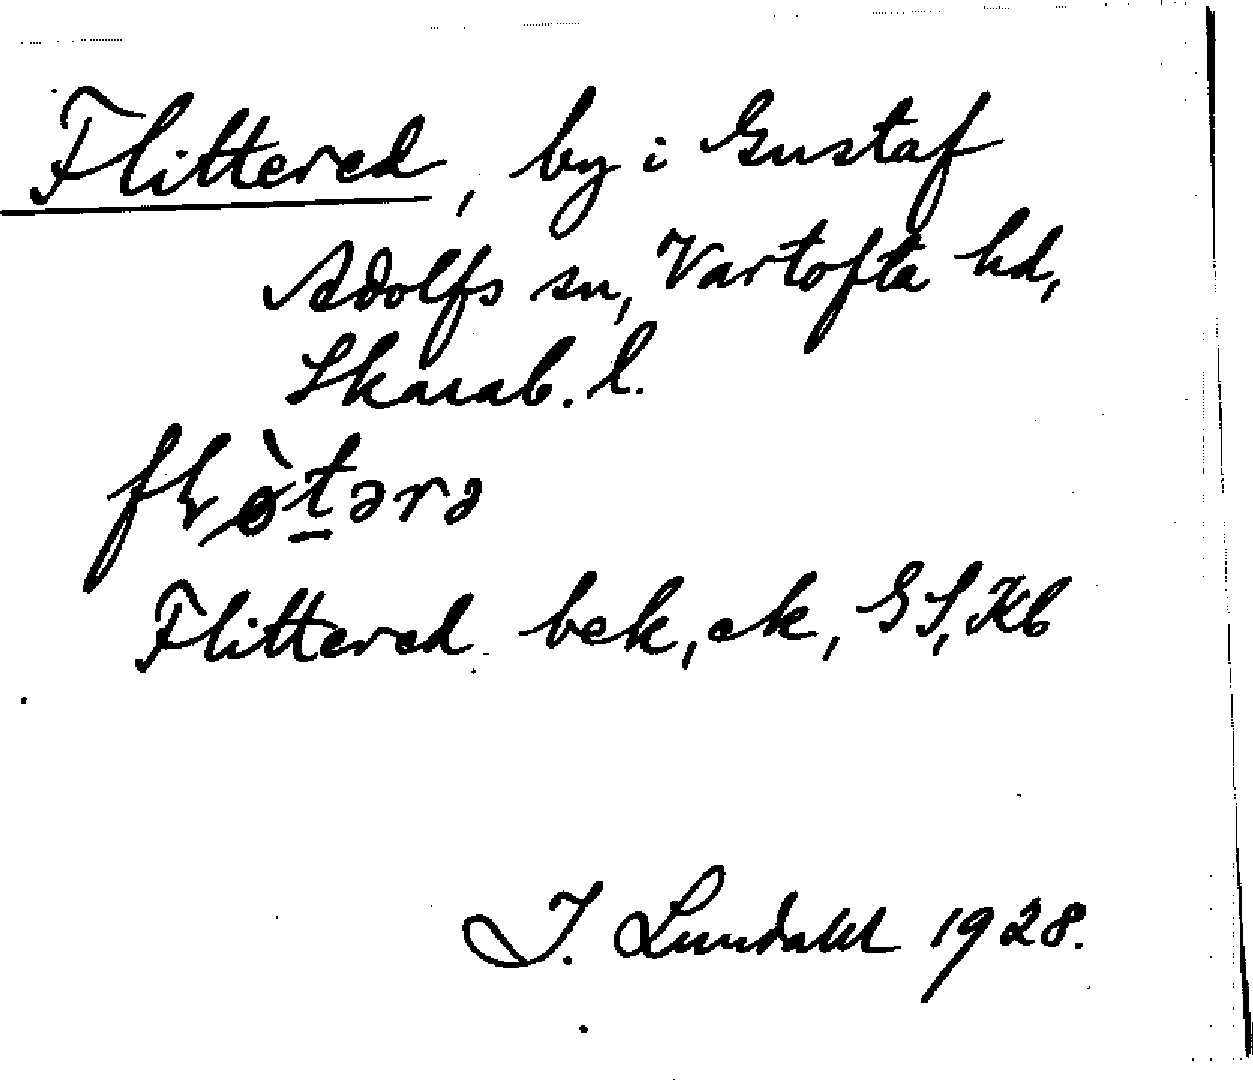 Flittered, by i Gustaf
Adolfs sn, Vartofta hd,
Skarab. l.
Flittered bek, ek, GS, Kb
I. Lundahl 1928.